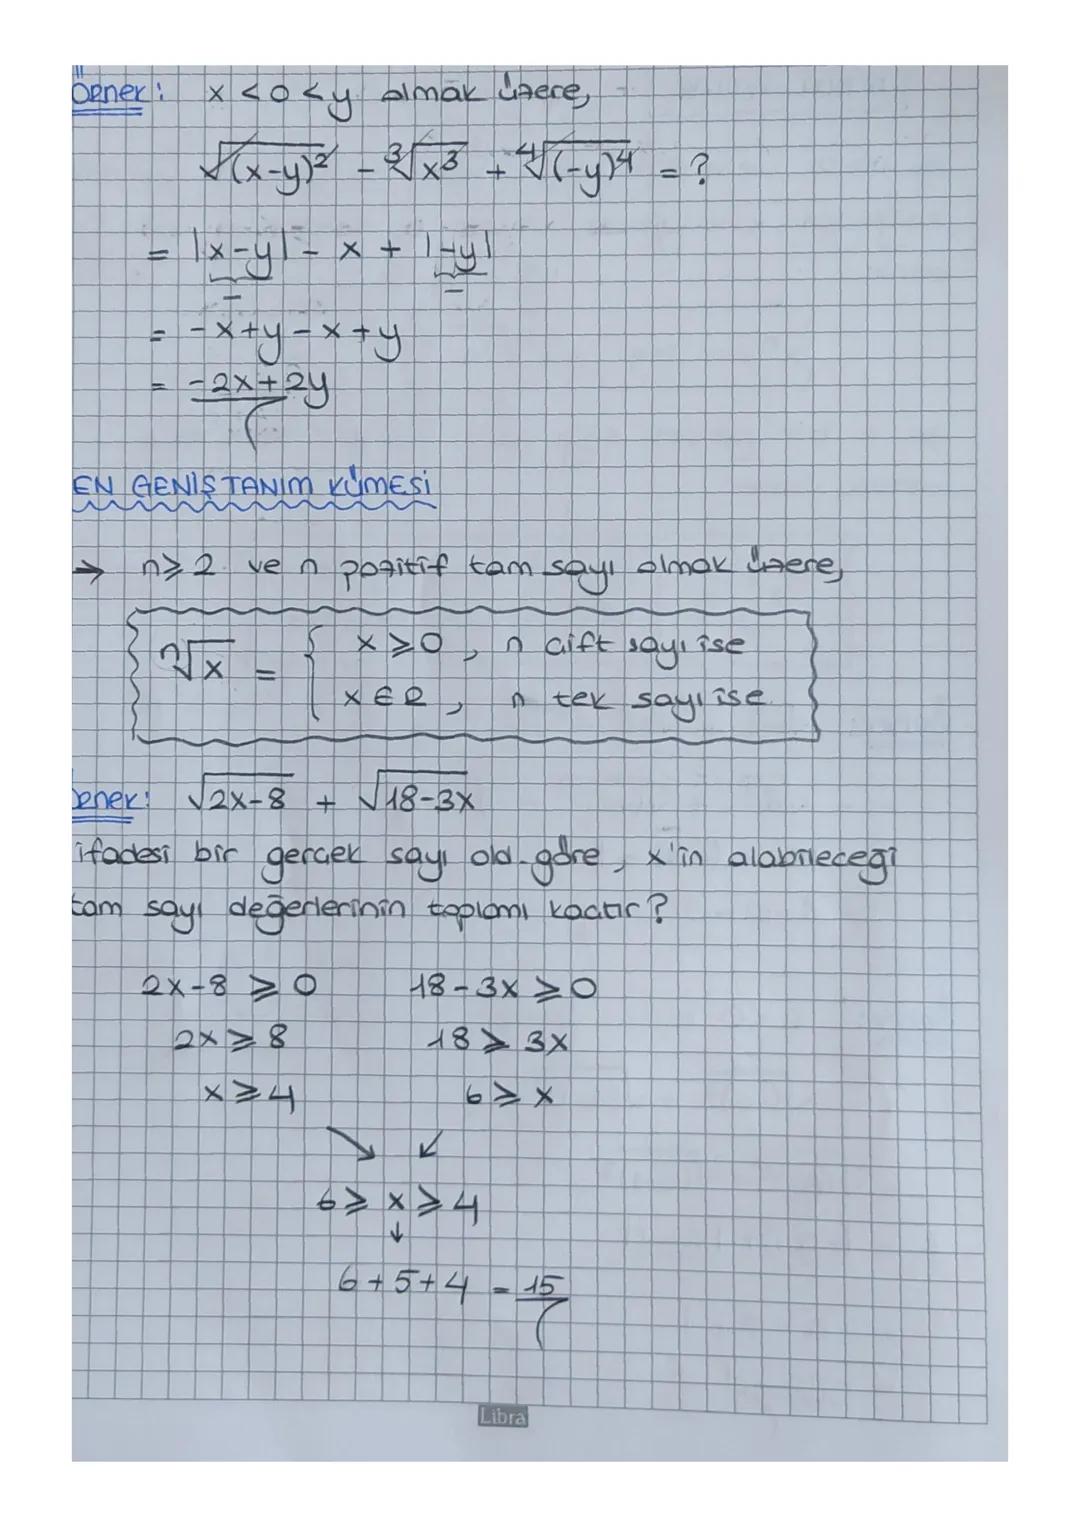 Örnek: x<0<y olmak üzere,
√(x-y)² - ³√x³ + ⁴√(-y)⁴ = ?
= |x-y| - x + |-y|
- -
= -x+y-x+y
= -2x+2y
EN GENİŞ TANIM KÜMESİ
→ n≥2 ve n pozitif tam sayı olmak üzere,
ⁿ√x = { x≥0, n çift sayı ise
x∈R, n tek sayı ise
Örnek: √2x-8 + √18-3x
ifadesi bir gerçek sayı old. göre, x'in alabileceği
tam sayı değerlerinin toplamı kaçtır?
2x-8 ≥ 0 18-3x ≥ 0
2x ≥ 8 18 ≥ 3x
x ≥ 4 6 ≥ x
↘ ↙
6 ≥ x ≥ 4
↓
6+5+4 = 15
Libra